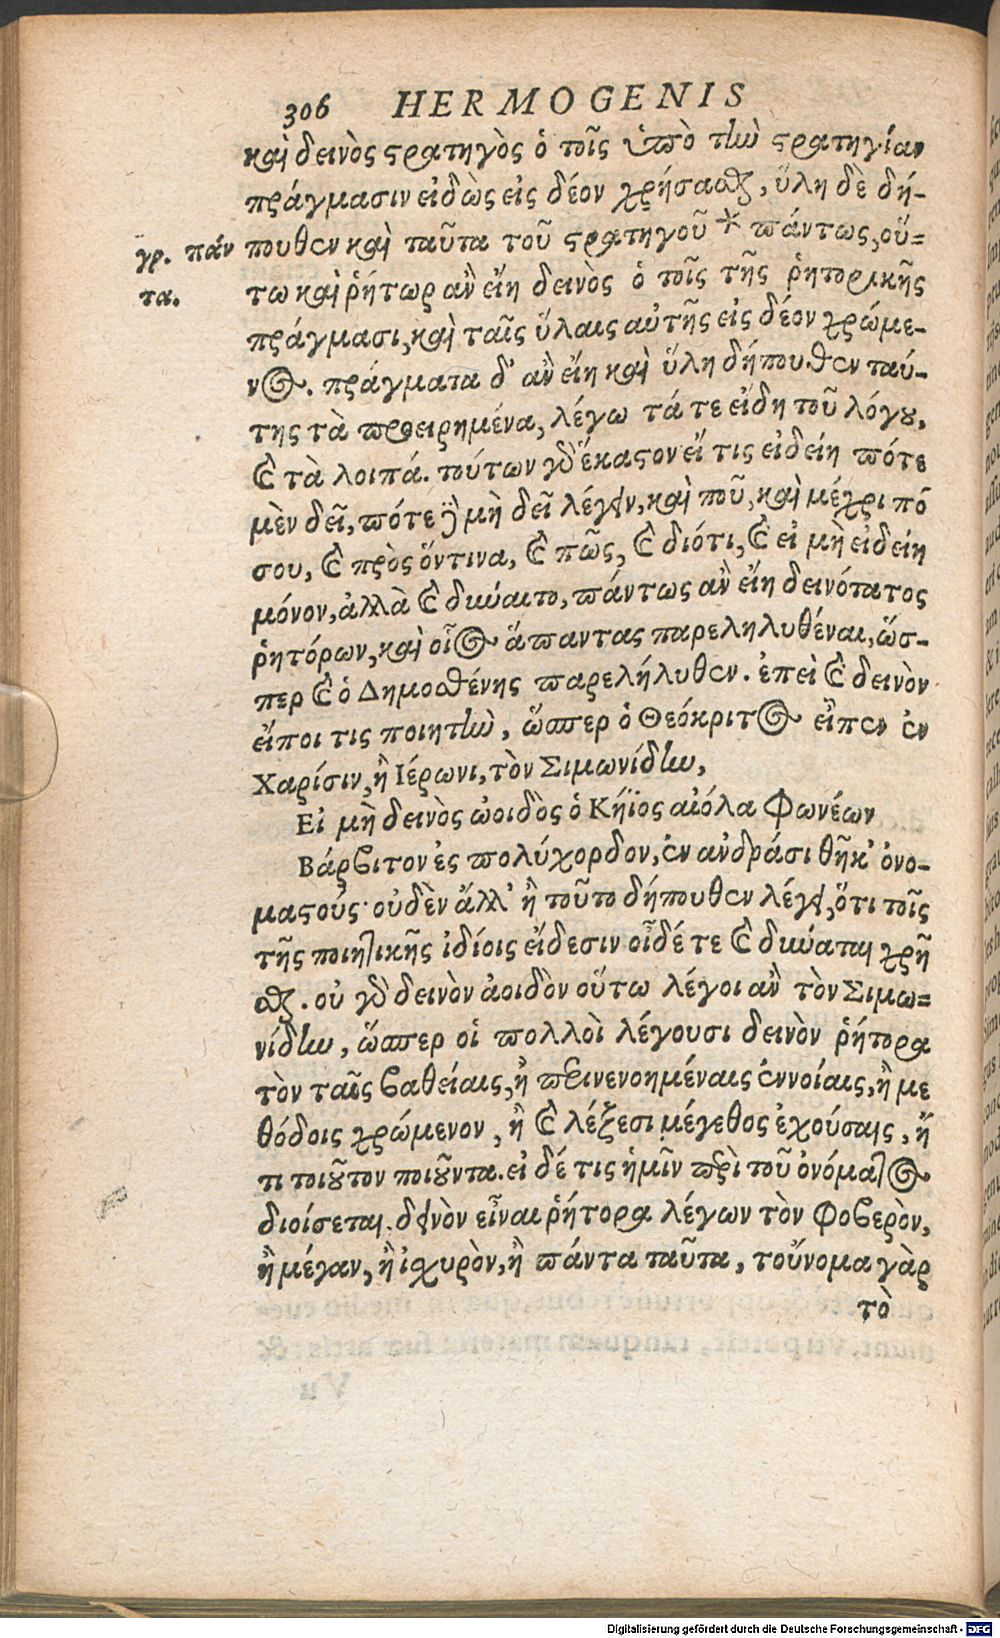 306 HERMOGENIS
καὶ δεινὸς στρατηγὸς ὁ τοῖς ὑπὸ τὴν στρατηγίαν
πράγμασιν εἰδὼς εἰς δέον χρήσασθαι, ὕλη δὲ δή-
πουθεν καὶ ταῦτα τοῦ στρατηγοῦ * πάντως, οὕ=
γρ. πάν
τα.
τω καὶ ῥήτωρ ἂν εἴη δεινὸς ὁ τοῖς τῆς ῥητορικῆς
πράγμασι, καὶ ταῖς ὕλαις αὐτῆς εἰς δέον χρώμε-
νος. πράγματα δ' ἂν εἴη καὶ ὕλη δήπουθεν ταύ-
της τὰ προειρημένα, λέγω τά τε εἴδη τοῦ λόγου,
καὶ τὰ λοιπά. τούτων γὰρ ἕκαστον εἴ τις εἰδείη πότε
μὲν δεῖ, πότε δὲ μὴ δεῖ λέγειν, καὶ ποῦ, καὶ μέχρι πό
σου, καὶ πρὸς ὅντινα, καὶ πῶς, καὶ διότι, καὶ εἰ μὴ εἰδείη
μόνον, ἀλλὰ καὶ δύναιτο, πάντως ἂν εἴη δεινότατος
ῥητόρων, καὶ οἷος ἅπαντας παρεληλυθέναι, ὥσ-
περ καὶ ὁ Δημοσθένης παρελήλυθεν. ἐπεὶ καὶ δεινὸν
εἴποι τις ποιητὴν, ὥσπερ ὁ Θεόκριτος εἶπεν ἐν
Χαρίσιν, ἢ Ιέρωνι, τὸν Σιμωνίδην,
Εἰ μὴ δεινὸς ὠοιδὸς ὁ Κήϊος αἰόλα φωνέων
Βάρβιτον ἐς πολύχορδον, ἐν ἀνδράσι θῆκ' ὀνο-
μαστούς· οὐδὲν ἄλλ' ἢ τοῦτο δήπουθεν λέγει, ὅτι τοῖς
τῆς ποιητικῆς ἰδίοις εἴδεσιν οἶδέ τε καὶ δύναται χρῆ
σθαι. οὐ γὰρ δεινὸν ἀοιδὸν οὕτω λέγοι ἂν τὸν Σιμω=
νίδην, ὥσπερ οἱ πολλοὶ λέγουσι δεινὸν ῥήτορα
τὸν ταῖς βαθείαις, ἢ περινενοημέναις ἐννοίαις, ἢ με
θόδοις χρώμενον, ἢ καὶ λέξεσι μέγεθος ἐχούσαις, ἤ
τι τοιοῦτον ποιοῦντα. εἰ δέ τις ἡμῖν περὶ τοῦ ὀνόματος
διοίσεται. δεινὸν εἶναι ῥήτορα λέγων τὸν φοβερὸν,
ἢ μέγαν, ἢ ἰσχυρὸν, ἢ πάντα ταῦτα, τοὔνομα γὰρ
τὸ
Digitalisierung gefördert durch die Deutsche Forschungsgemeinschaft - DFG